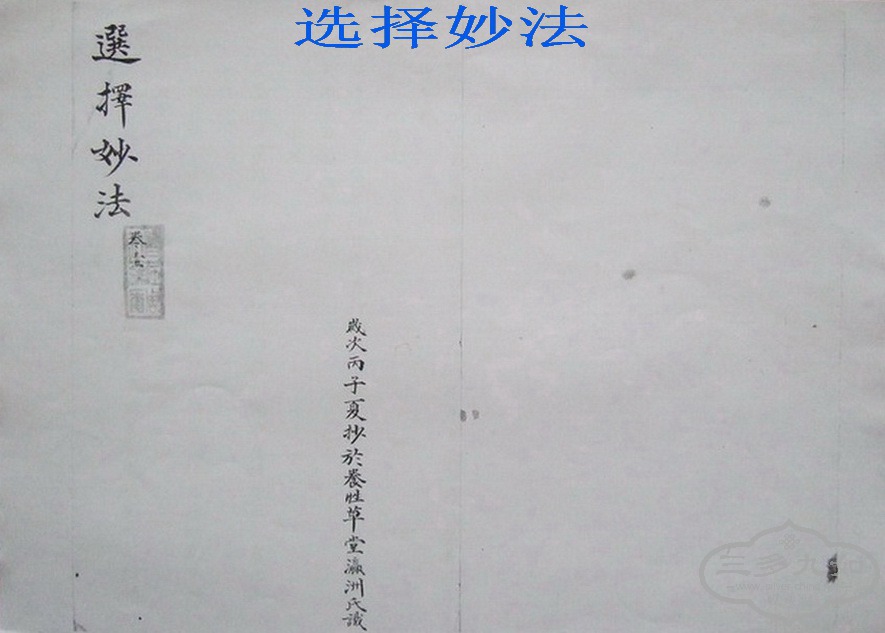 选择妙法
選擇妙法
卷
歲次丙子夏抄於養性草堂瀛洲氏識